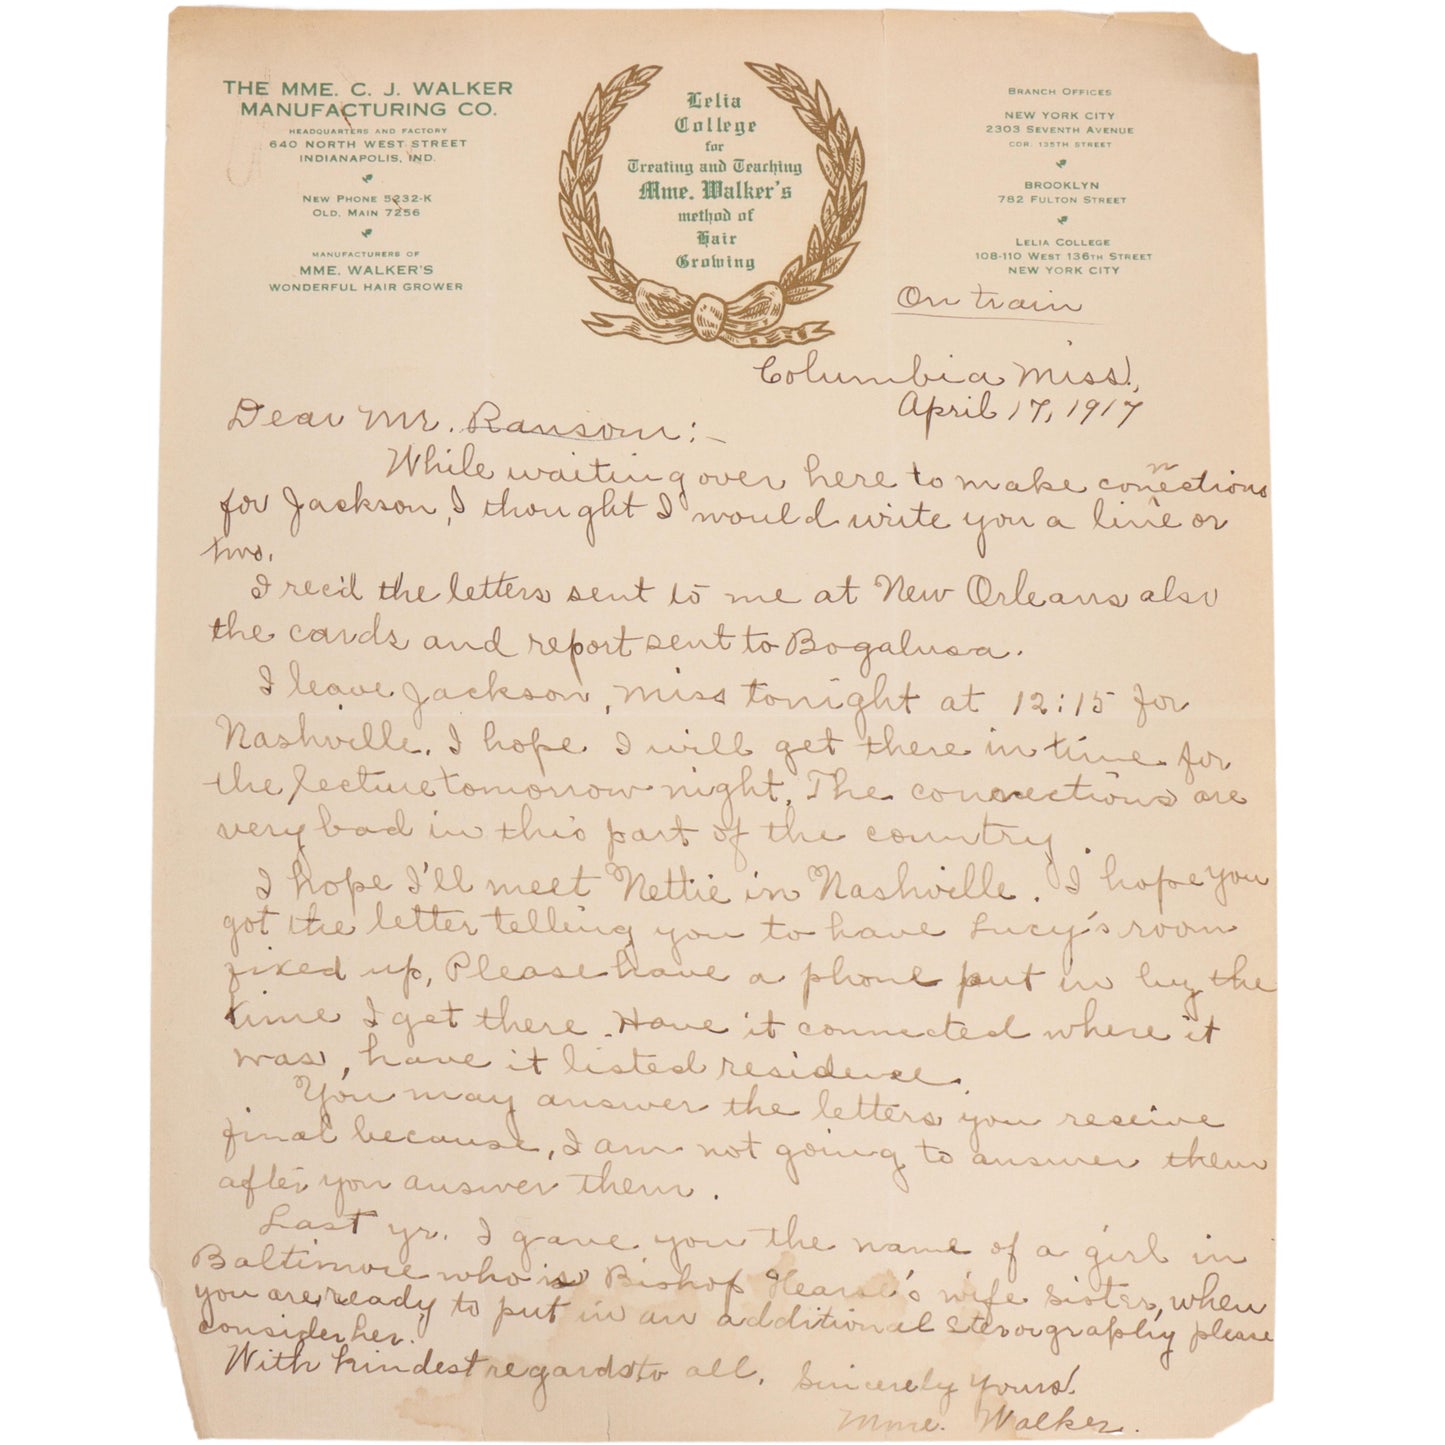 THE MME. C. J. WALKER
MANUFACTURING CO.
HEADQUARTERS AND FACTORY
640 NORTH WEST STREET
INDIANAPOLIS, IND.
NEW PHONE 5232-K
OLD, MAIN 7256
MANUFACTURERS OF
MME. WALKER'S
WONDERFUL HAIR GROWER
Lelia
College
for
Treating and Teaching
Mme. Walker's
method of
Hair
Growing
BRANCH OFFICES
NEW YORK CITY
2303 SEVENTH AVENUE
COR. 135TH STREET
BROOKLYN
782 FULTON STREET
LELIA COLLEGE
108-110 WEST 136TH STREET
NEW YORK CITY
On train
Columbia Miss.,
April 17, 1917
Dear Mr. Ransom:-
While waiting over here to make connections
for Jackson, I thought I would write you a line or
two.
I rec'd the letters sent to me at New Orleans also
the cards and report sent to Bogalusa.
I leave Jackson, Miss tonight at 12:15 for
Nashville. I hope I will get there in time for
the lecture tomorrow night. The connections are
very bad in this part of the country.
I hope I'll meet Nettie in Nashville. I hope you
got the letter telling you to have Lucy's room
fixed up, Please have a phone put in by the
time I get there. Have it connected where it
was, have it listed residence.
You may answer the letters you receive
final because, I am not going to answer them
after you answer them.
Last yr. I gave you the name of a girl in
Baltimore who is Bishop Hearse's wife sister, when
you are ready to put in an additional stenography please
consider her.
With kindest regards to all.
Sincerely yours.
Mme. Walker.